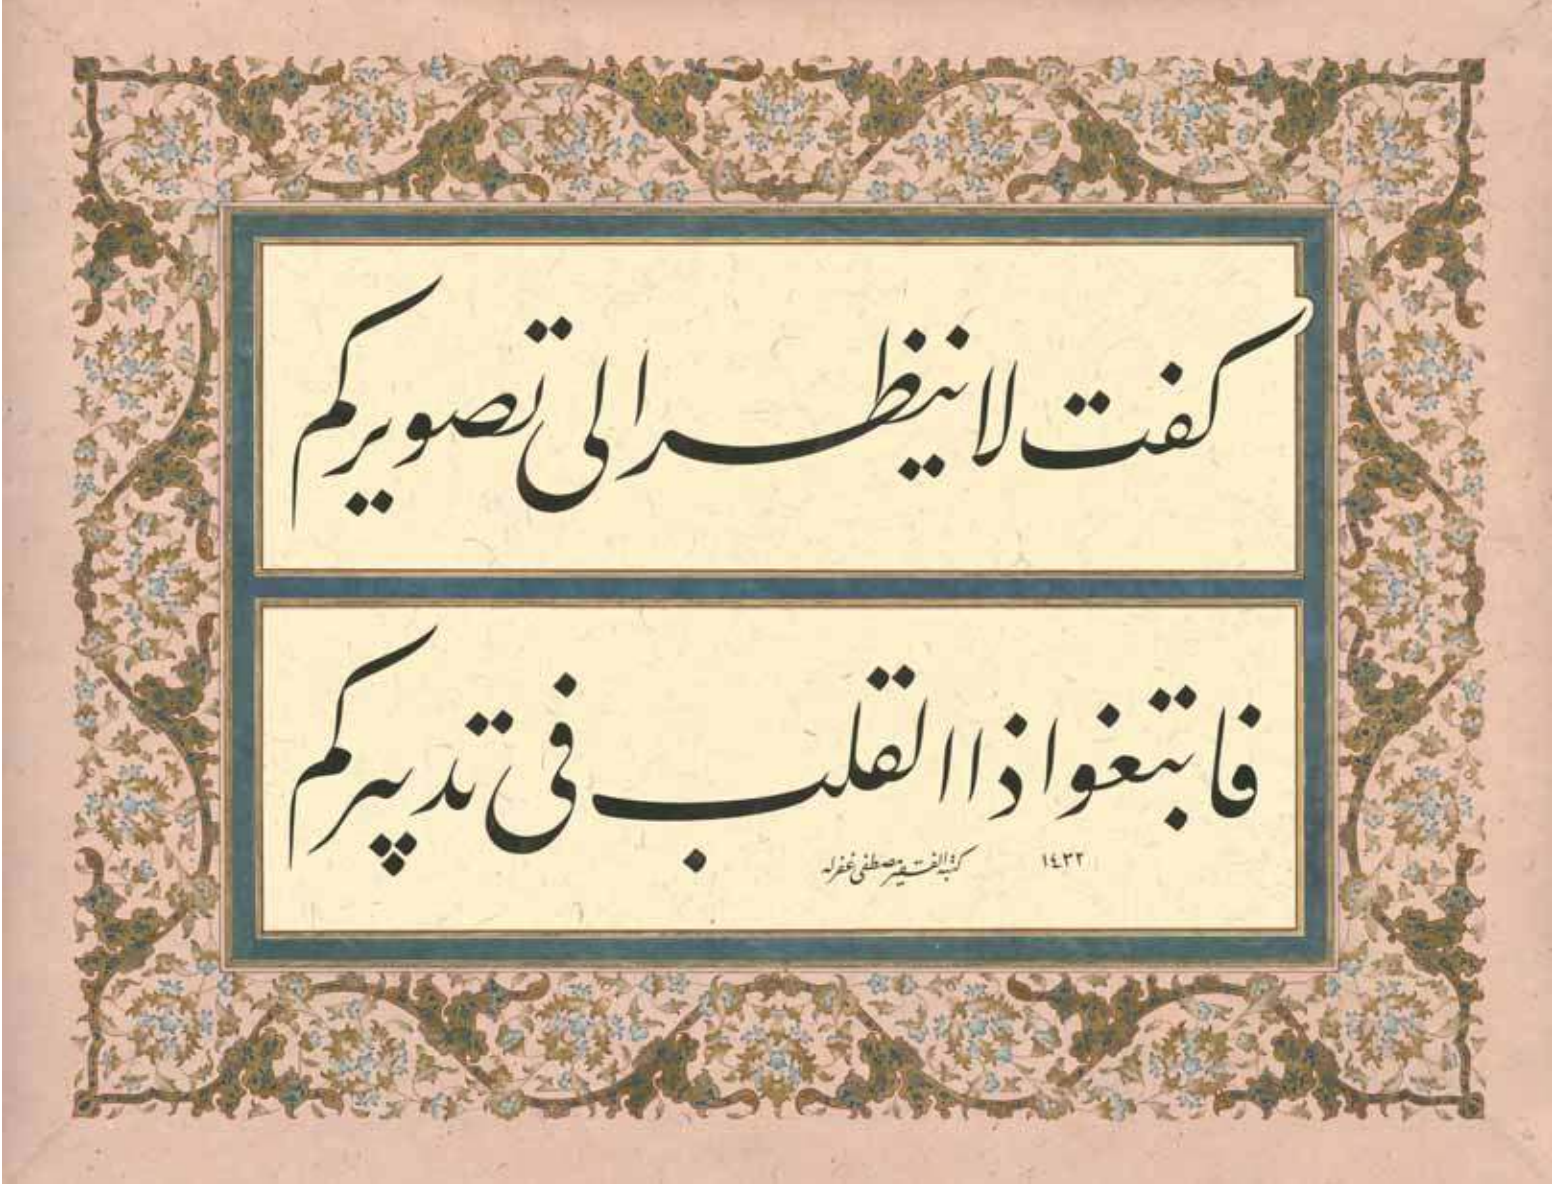 كفت لا ينظر الى تصويركم
فابتغوا ذا القلب فى تدبيركم
كتبه الفقير مصطفى غفرله ١٤٣٢